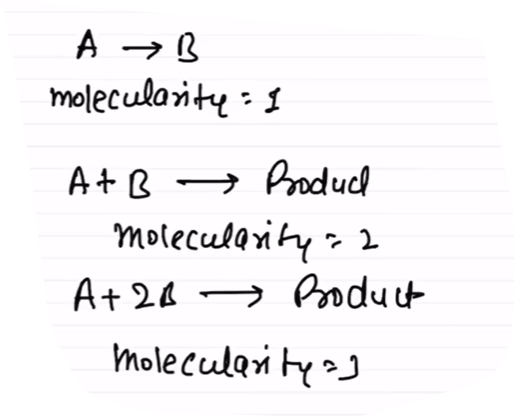 A → B
molecularity = 1
A + B → Product
Molecularity = 2
A + 2B → Product
Molecularity = 3